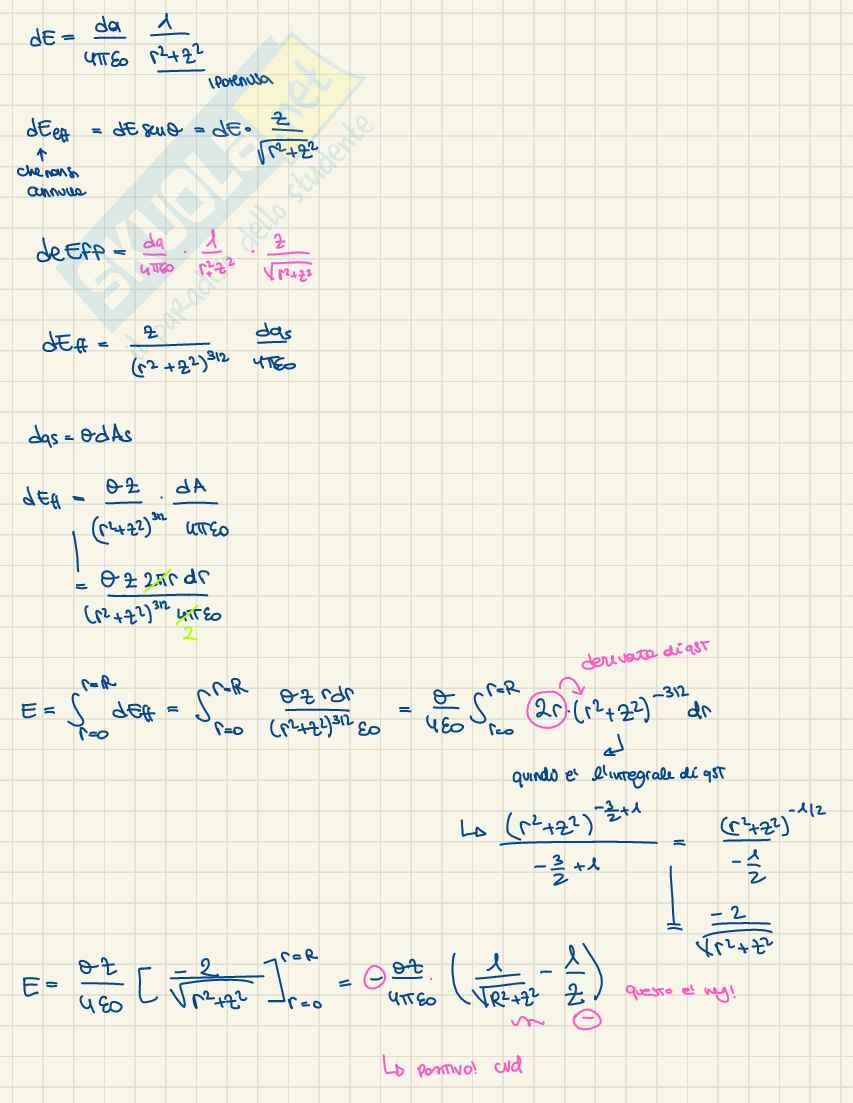 dE = dq/4πε0 1/r²+z²
ipotenusa
dEeff = dE senθ = dE · z/√r²+z²
↑
che non si
annulla
SKUOLA.net
il paradiso dello studente
deEff = dq/4πε0 · 1/r²+z² · z/√r²+z²
dEff = z/(r²+z²)^3/2 dqs/4πε0
dqs = θdAs
dEff = θz/(r²+z²)^3/2 · dA/4πε0
= θz 2πr dr/(r²+z²)^3/2 4πε0
2
derivata di qst
E = ∫_r=0^r=R dEff = ∫_r=0^r=R θz rdr/(r²+z²)^3/2 ε0 = θ/4ε0 ∫_r=0^r=R 2r·(r²+z²)^-3/2 dr
quindi e' l'integrale di qst
↳ (r²+z²)^-3/2+1/-3/2+1 = (r²+z²)^-1/2/-1/2
= -2/√r²+z²
E = θz/4ε0 [-2/√r²+z²]_r=0^r=R = - θz/4πε0 · (1/√R²+z² - 1/z) questo e' neg!
-
↳ positivo! cvd